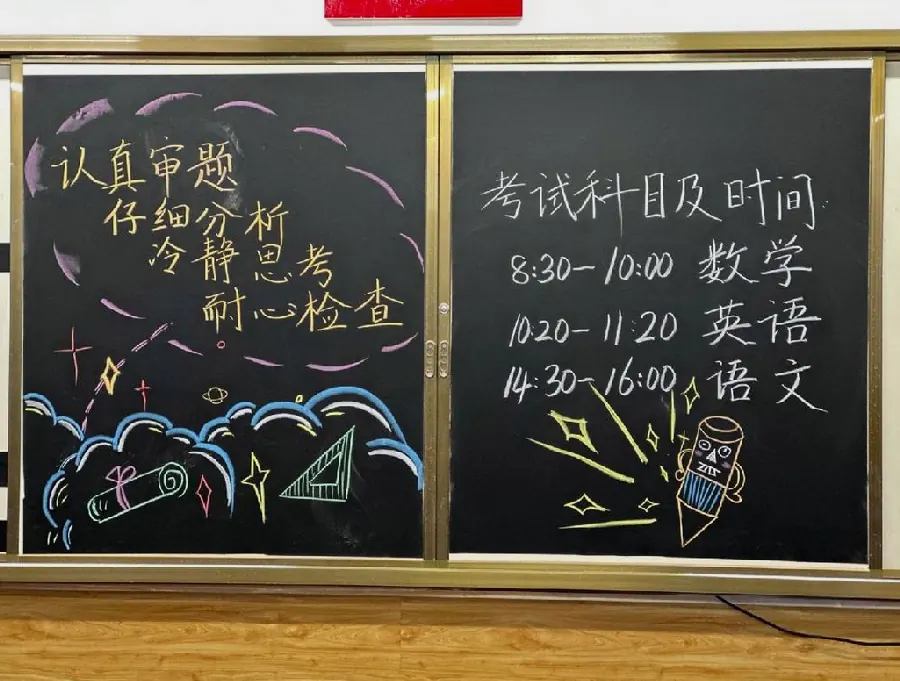 认真审题
仔细分析
冷静思考
耐心检查
考试科目及时间
8:30-10:00 数学
10:20-11:20 英语
14:30-16:00 语文